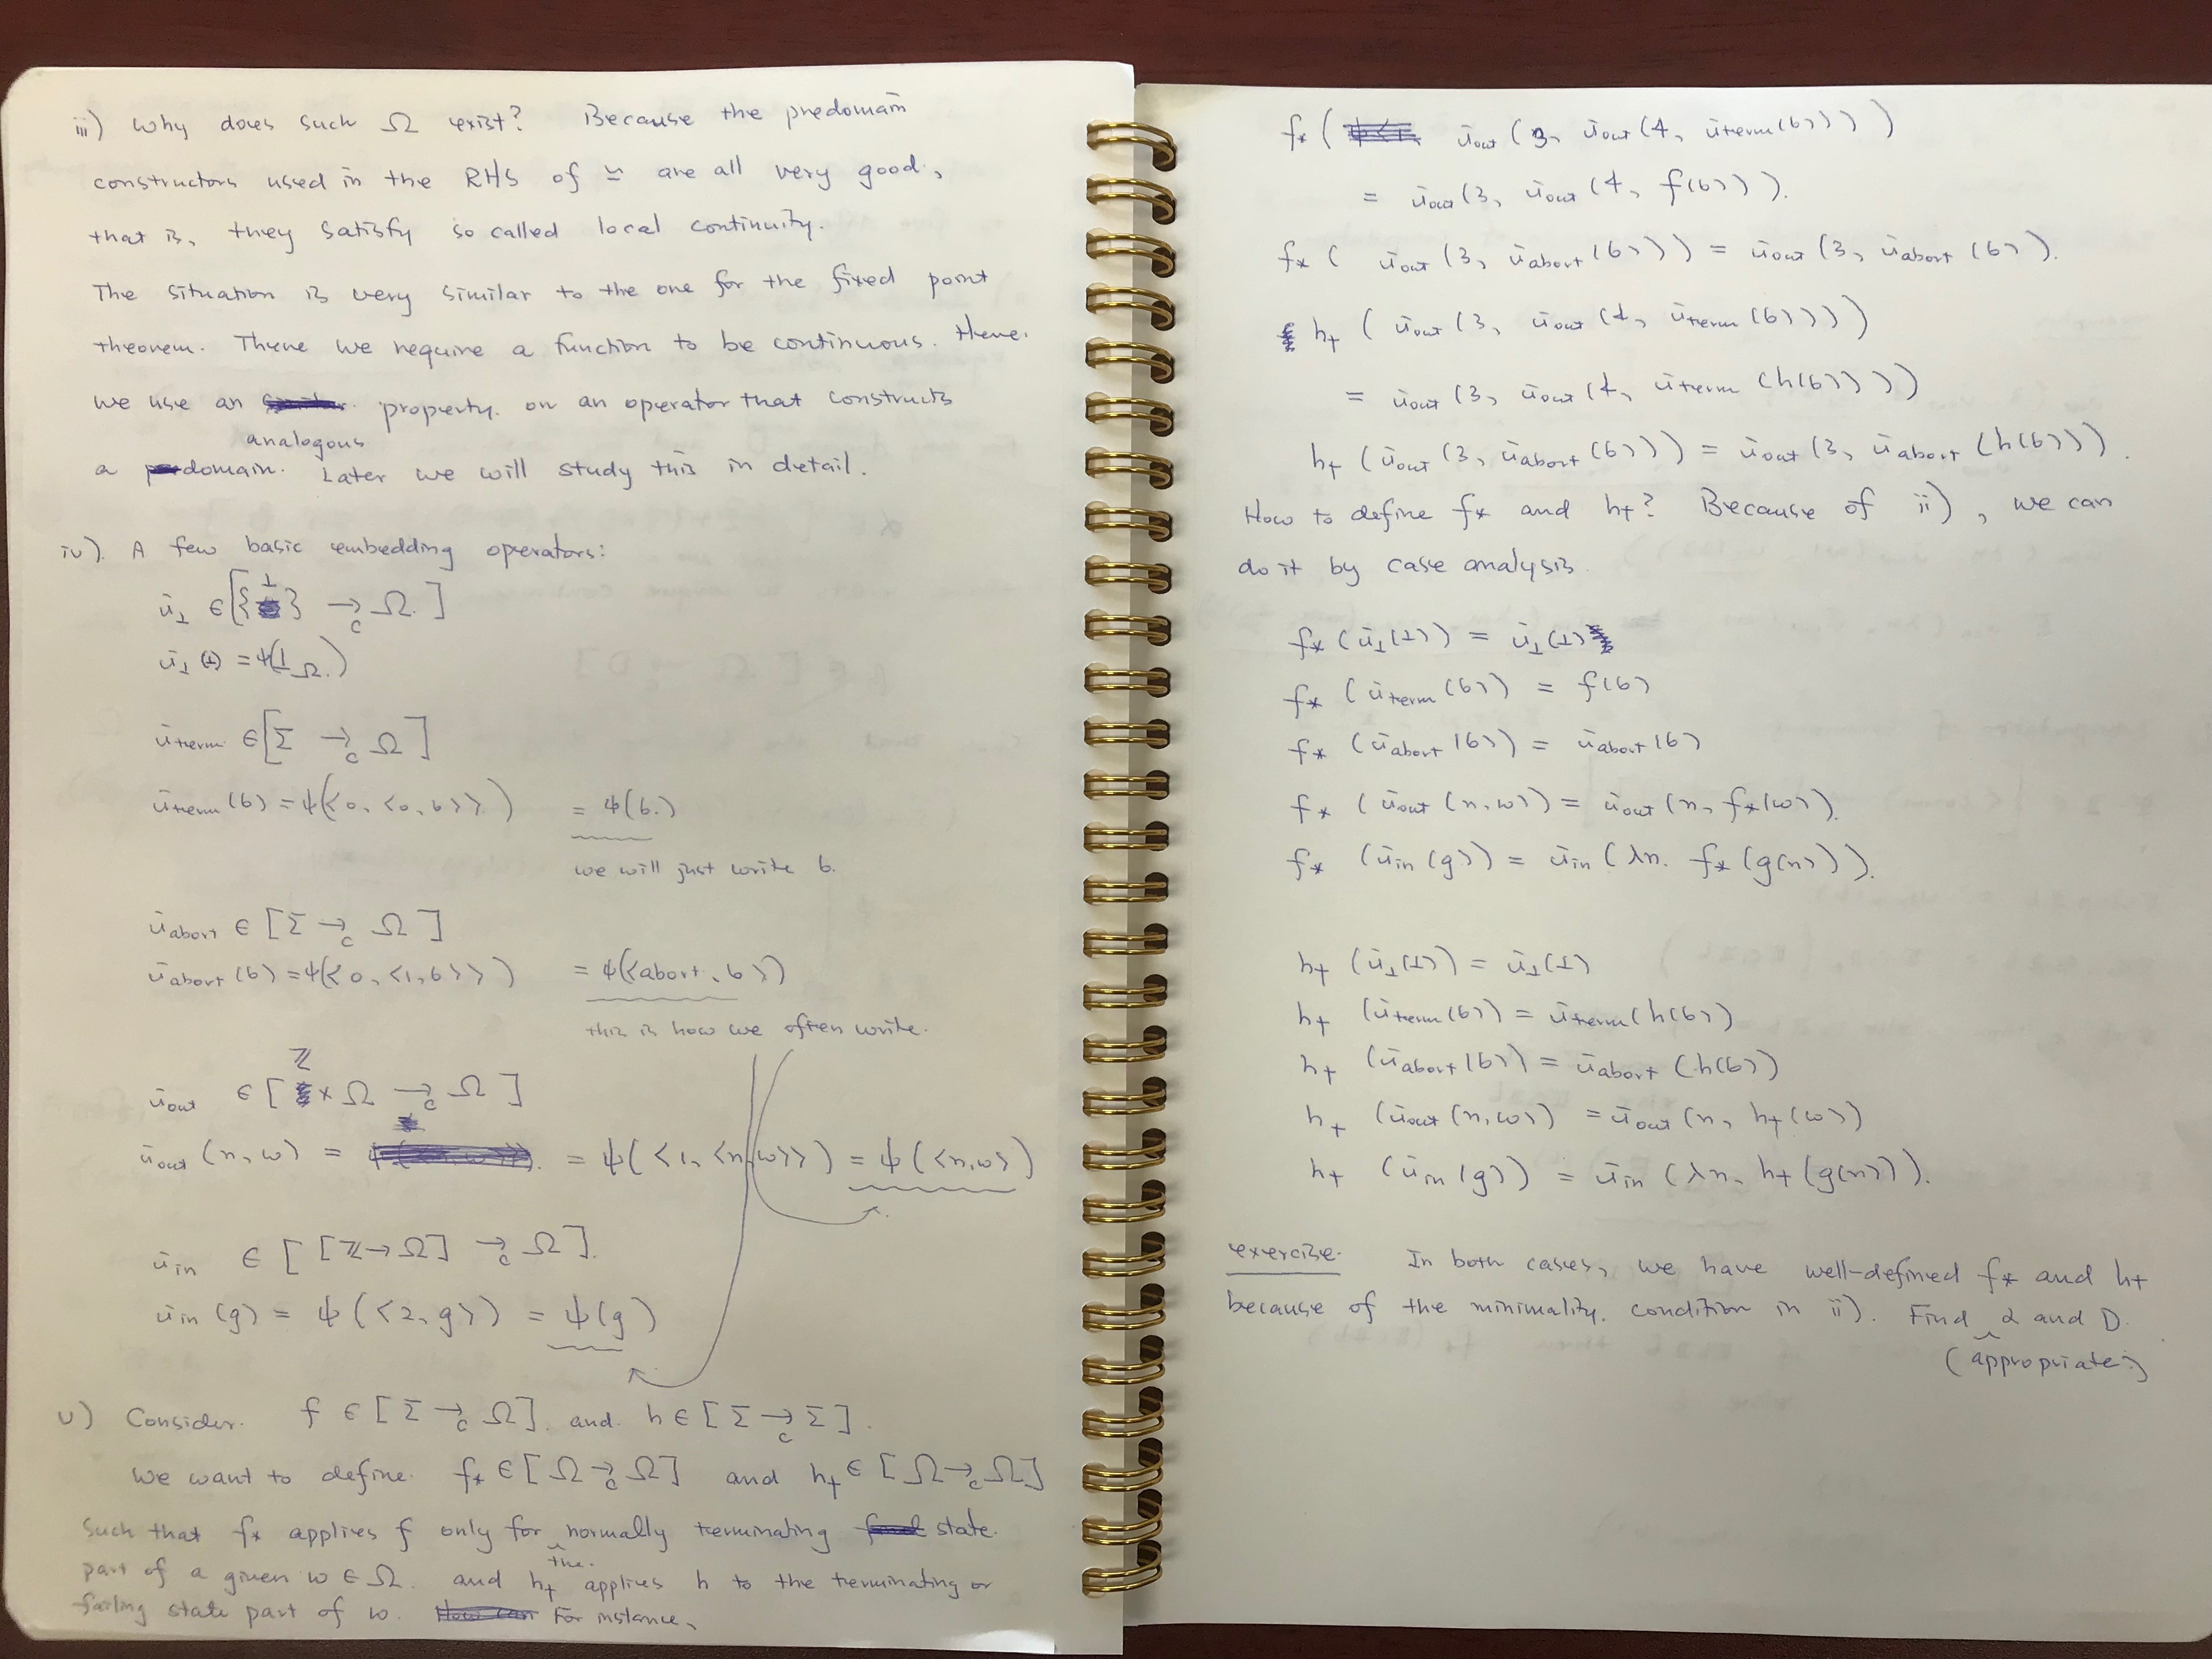 iii) Why does such Ω exist? Because the predomain
constructors used in the RHS of ≃ are all very good,
that is, they satisfy so called local continuity.
The situation is very similar to the one for the fixed point
theorem. There we require a function to be continuous. Here.
we use an property. on an operator that constructs
analogous
a domain. Later we will study this in detail.
iv). A few basic embedding operators:
ι⊥ ∈ [{⊥} →c Ω.]
ι⊥(⊥) = ψ(⊥Ω.)
ιterm ∈ [Σ →c Ω]
ιterm(σ) = ψ(<0, <0, σ>>) = ψ(σ.)
we will just write σ.
ιabort ∈ [Σ →c Ω]
ιabort(σ) = ψ(<0, <1, σ>>) = ψ(<abort, σ>)
this is how we often write.
ιout ∈ [ℤ × Ω →c Ω]
ιout(n, ω) = = ψ(<1, <n, ω>>) = ψ(<n, ω>)
ιin ∈ [[ℤ → Ω] →c Ω].
ιin(g) = ψ(<2, g>) = ψ(g)
v) Consider. f ∈ [Σ →c Ω]. and. h ∈ [Σ →c Σ].
We want to define. f* ∈ [Ω →c Ω] and h† ∈ [Ω →c Ω]
such that f* applies f only for the. normally terminating state.
part of a given ω ∈ Ω. and h† applies h to the terminating or
failing state part of ω. For instance,
f*( ιout(3, ιout(4, ιterm(σ))))
= ιout(3, ιout(4, f(σ))).
f*( ιout(3, ιabort(σ))) = ιout(3, ιabort(σ)).
h†(ιout(3, ιout(4, ιterm(σ))))
= ιout(3, ιout(4, ιterm(h(σ))))
h†(ιout(3, ιabort(σ))) = ιout(3, ιabort(h(σ))).
How to define f* and h†? Because of ii), we can
do it by case analysis.
f*(ι⊥(⊥)) = ι⊥(⊥)
f*(ιterm(σ)) = f(σ)
f*(ιabort(σ)) = ιabort(σ)
f*(ιout(n, ω)) = ιout(n, f*(ω)).
f*(ιin(g)) = ιin(λn. f*(g(n))).
h†(ι⊥(⊥)) = ι⊥(⊥)
h†(ιterm(σ)) = ιterm(h(σ))
h†(ιabort(σ)) = ιabort(h(σ))
h†(ιout(n, ω)) = ιout(n, h†(ω))
h†(ιin(g)) = ιin(λn. h†(g(n))).
exercise. In both cases, we have well-defined f* and h†
because of the minimality. condition in ii). Find α and D.
(appropriate.)